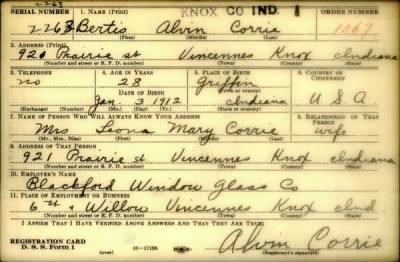 2263
SERIAL NUMBER 1. NAME (Print) KNOX CO IND. 1 ORDER NUMBER
2263 Bertis Alvin Corrie 1067
(First) (Middle) (Last)
2. ADDRESS (Print)
921 Prairie st Vincennes Knox Indiana
(Number and street or R. F. D. number) (Town) (County) (State)
3. TELEPHONE 4. AGE IN YEARS 5. PLACE OF BIRTH 6. COUNTRY OF CITIZENSHIP
no 28 Griffin
DATE OF BIRTH (Town or county)
Jan. 3 1912 Indiana U.S.A.
(Exchange) (Number) (Mo.) (Day) (Yr.) (State or country)
7. NAME OF PERSON WHO WILL ALWAYS KNOW YOUR ADDRESS 8. RELATIONSHIP OF THAT PERSON
Mrs Leona Mary Corrie wife
(Mr., Mrs., Miss) (First) (Middle) (Last)
9. ADDRESS OF THAT PERSON
921 Prairie st Vincennes Knox Indiana
(Number and street or R. F. D. number) (Town) (County) (State)
10. EMPLOYER'S NAME
Blackford Window Glass Co
11. PLACE OF EMPLOYMENT OR BUSINESS
6th & Willow Vincennes Knox Ind
(Number and street or R. F. D. number) (Town) (County) (State)
I AFFIRM THAT I HAVE VERIFIED ABOVE ANSWERS AND THAT THEY ARE TRUE.
REGISTRATION CARD
D. S. S. Form 1 16-17105 Alvin Corrie
(Registrant's signature)